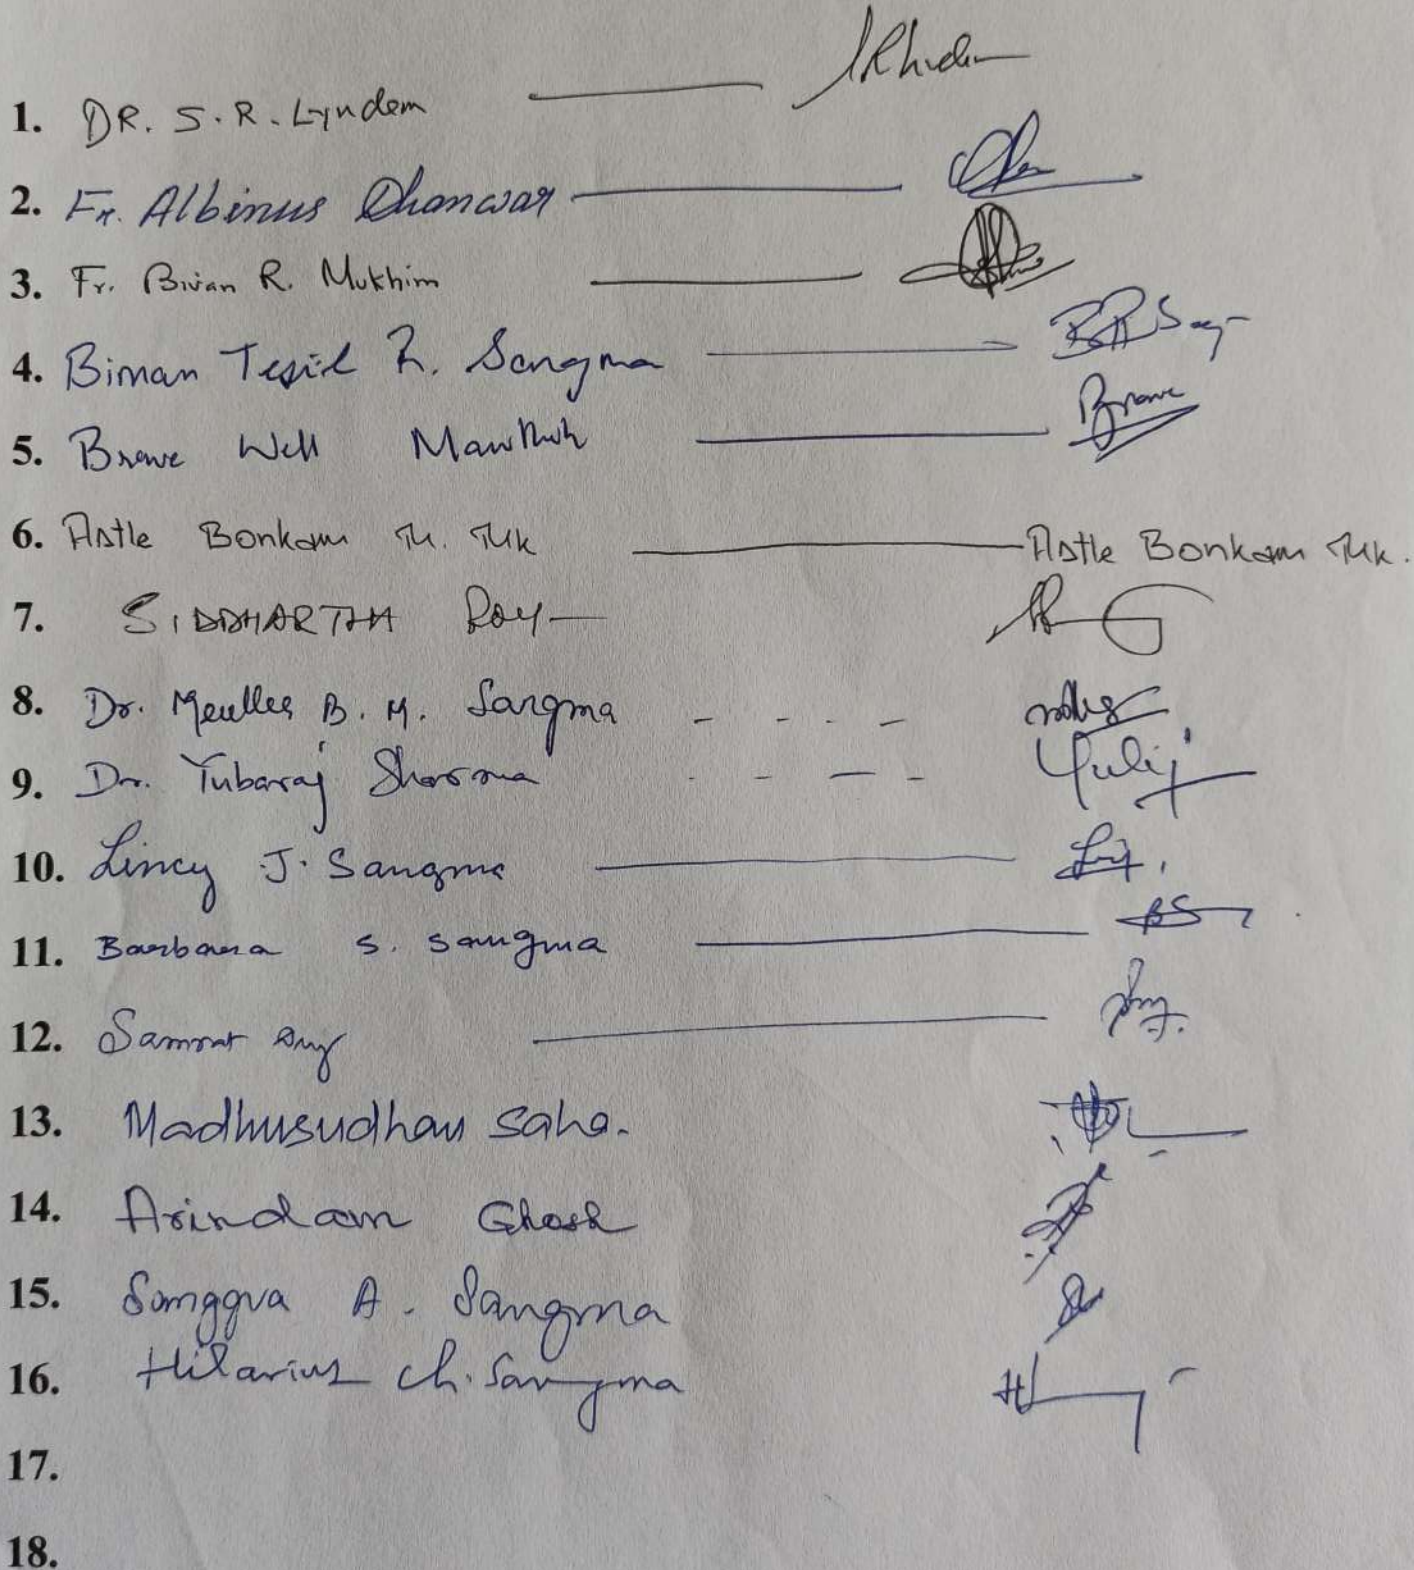 1. DR. S.R. Lyndem
2. Fr. Albinus Dhanwar
3. Fr. Bivan R. Mukhim
4. Biman Tesil R. Sangma
5. Brave Well Mawthoh Brave
6. Astle Bonkam M. Mk Astle Bonkam Mk.
7. SIDDHARTHA Roy
8. Dr. Meulles B. M. Sangma
9. Dr. Yubaraj Sharma
10. Lincy J. Sangma
11. Barbara S. Sangma BS
12. Samrat
13. Madhusudhan Saha.
14. Arindam Ghosh
15. Sanggra A. Sangma
16. Hilarius Ch. Sangma
17.
18.